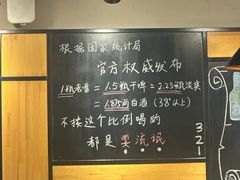 根据国家统计局
官方权威发布
1瓶老雪=1.5瓶干啤=2.25瓶淡爽
=1.885两白酒(38°以上)
不按这个比例喝的
都是耍流氓
3
2
1